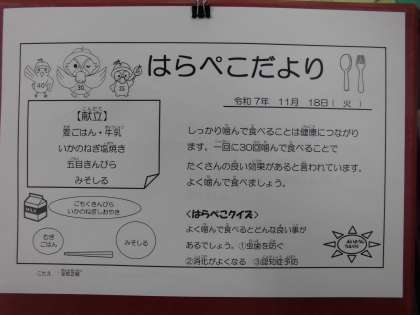 はらぺこだより
令和7年 11月 18日(火)
40
30
35
【献立】
麦ごはん・牛乳
いかのねぎ塩焼き
五目きんぴら
みそしる
しっかり噛んで食べることは健康につながり
ます。一回に30回噛んで食べることで
たくさんの良い効果があると言われています。
よく噛んで食べましょう。
ごもくきんぴら
いかのねぎしおやき
むぎ
ごはん
みそしる
<はらぺこクイズ>
よく噛んで食べるとどんな良い事が
あるでしょう。①虫歯を防ぐ
②消化がよくなる ③認知症予防
こたえ